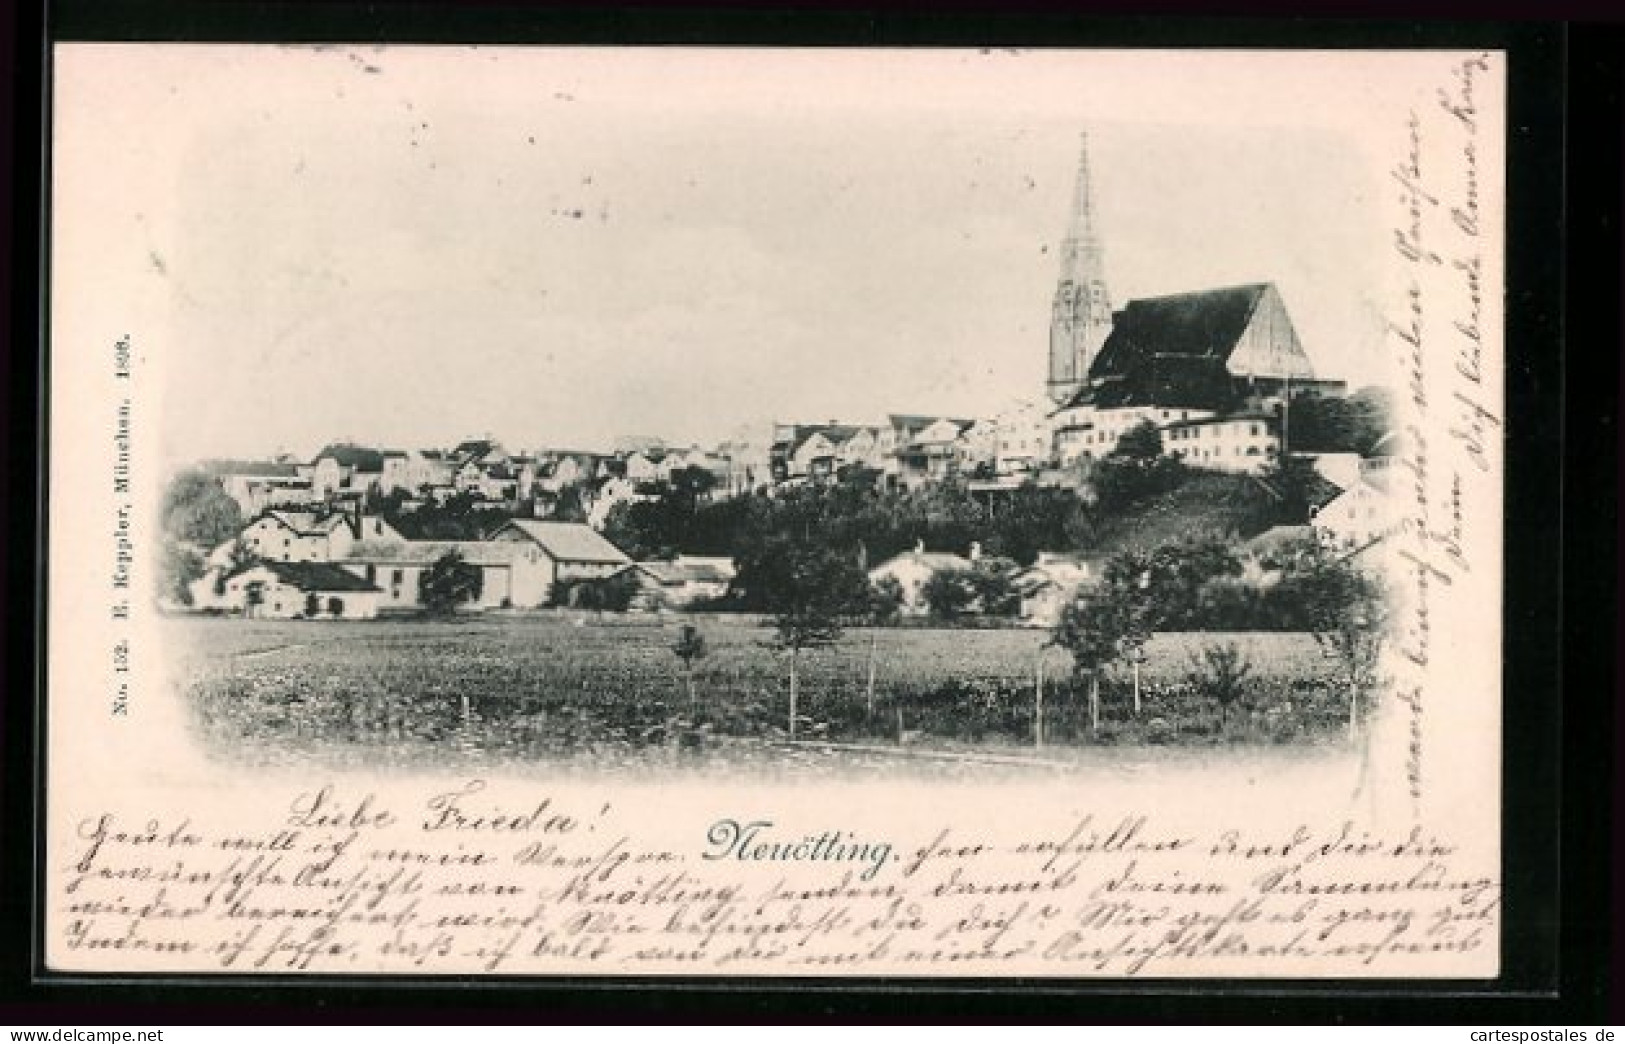 No. 152. E. Keppler, München. 1898.
Liebe Frieda!
Heute will ich mein Verspre- Neuötting. chen erfüllen und dir die
gewünschte Ansicht von Neuötting senden, damit deine Sammlung
wieder bereichert wird. Wie befindest du dich? Mir geht es ganz gut.
Indem ich hoffe, daß ich bald von dir mit einer Ansichtskarte erfreut
werde bin ich unter vielen Grüßen
Deine dich liebende Anna
cartespostales de
www.cartespostales.eu